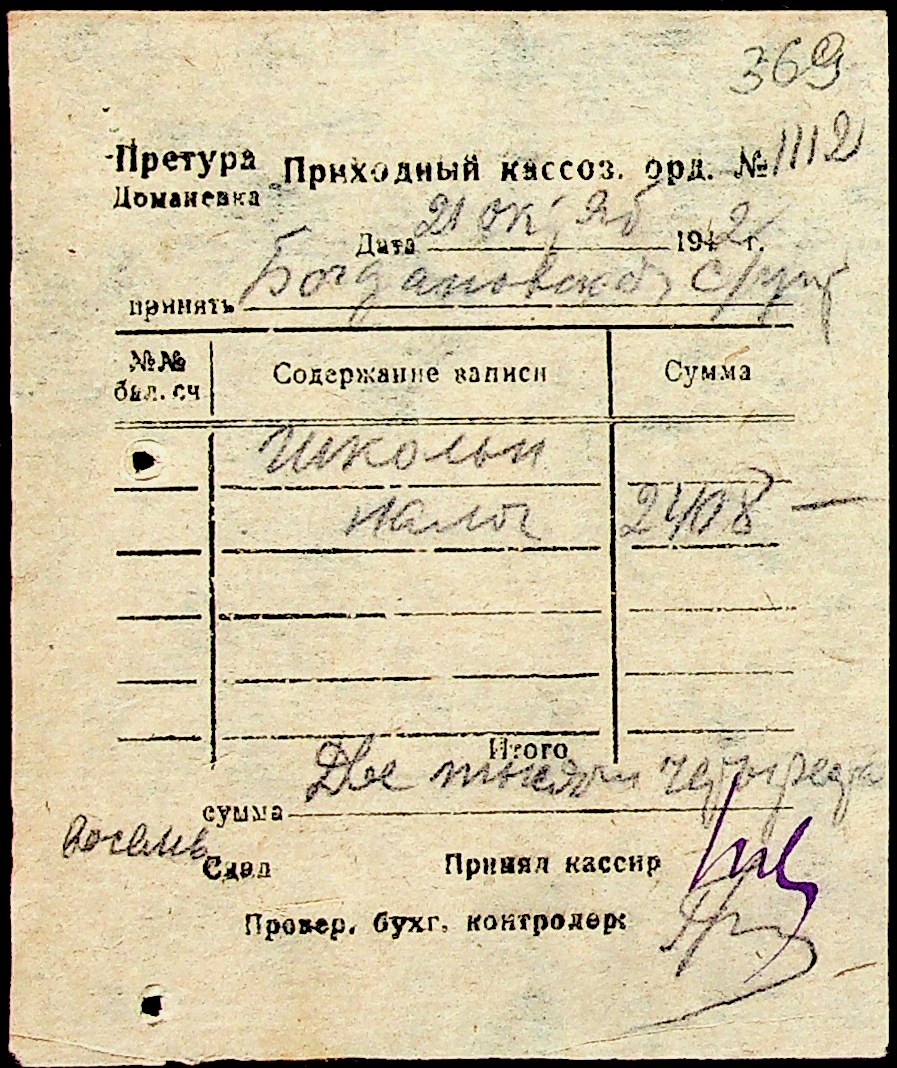 369
Претура Приходный кассов. орд. № 1112
Доманевка
Дата 21 октяб 1942 г.
принять Богдановской с/упр
№№ бал. сч Содержание записи Сумма
Школьн
налог 2408 —
Итого
сумма Две тысячи четыреста
восемь
Сдал Принял кассир
Провер. бухг. контролер: